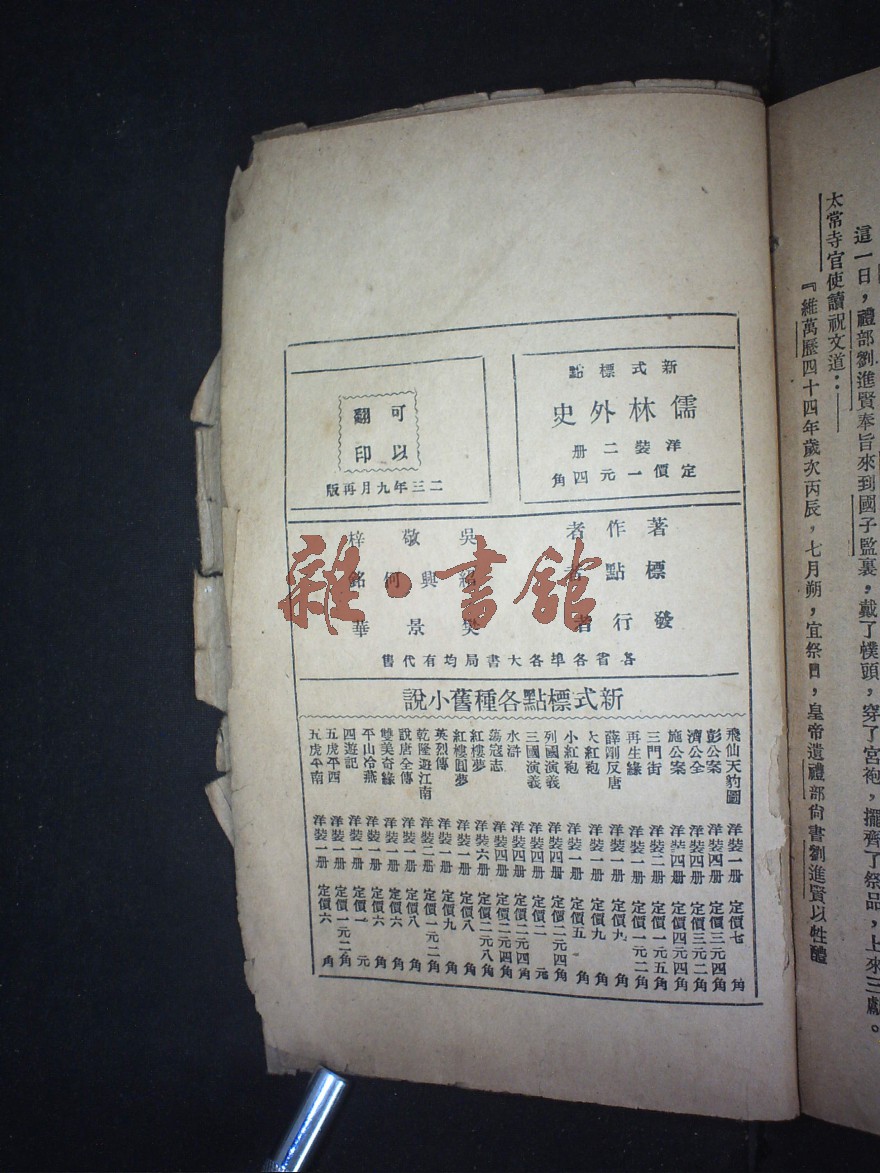 這一日，禮部劉進賢奉旨來到國子監裏，戴了幞頭，穿了宮袍，擺齊了祭品，上來三獻。
太常寺官使讀祝文道：——
『維萬歷四十四年歲次丙辰，七月朔，宜祭日，皇帝遣禮部尙書劉進賢以牲醴
新式標點
儒林外史
洋裝二册
定價一元四角
可以翻印
二三年九月再版
著作者 吳敬梓
標點者 紹興何銘
發行者 樊景華
各省各埠各大書局均有代售
新式標點各種舊小說
飛仙天豹圖 洋裝一册 定價七角
彭公案 洋裝四册 定價三元四角
濟公全 洋裝四册 定價三元二角
施公案 洋裝四册 定價四元四角
三門街 洋裝二册 定價一元五角
再生緣 洋裝一册 定價一元二角
薛剛反唐 洋裝一册 定價九角
大紅袍 洋裝一册 定價九角
小紅袍 洋裝一册 定價五角
列國演義 洋裝四册 定價二元四角
三國演義 洋裝四册 定價二元
水滸 洋裝四册 定價二元四角
蕩寇志 洋裝四册 定價二元四角
紅樓夢 洋裝六册 定價二元八角
紅樓圓夢 洋裝一册 定價八角
英烈傳 洋裝一册 定價九角
乾隆遊江南 洋裝二册 定價一元二角
說唐全傳 洋裝一册 定價八角
雙美奇緣 洋裝一册 定價六角
平山冷燕 洋裝一册 定價六角
四遊記 洋裝一册 定價一元
五虎平西 洋裝一册 定價一元二角
五虎平南 洋裝一册 定價六角
雜·書館